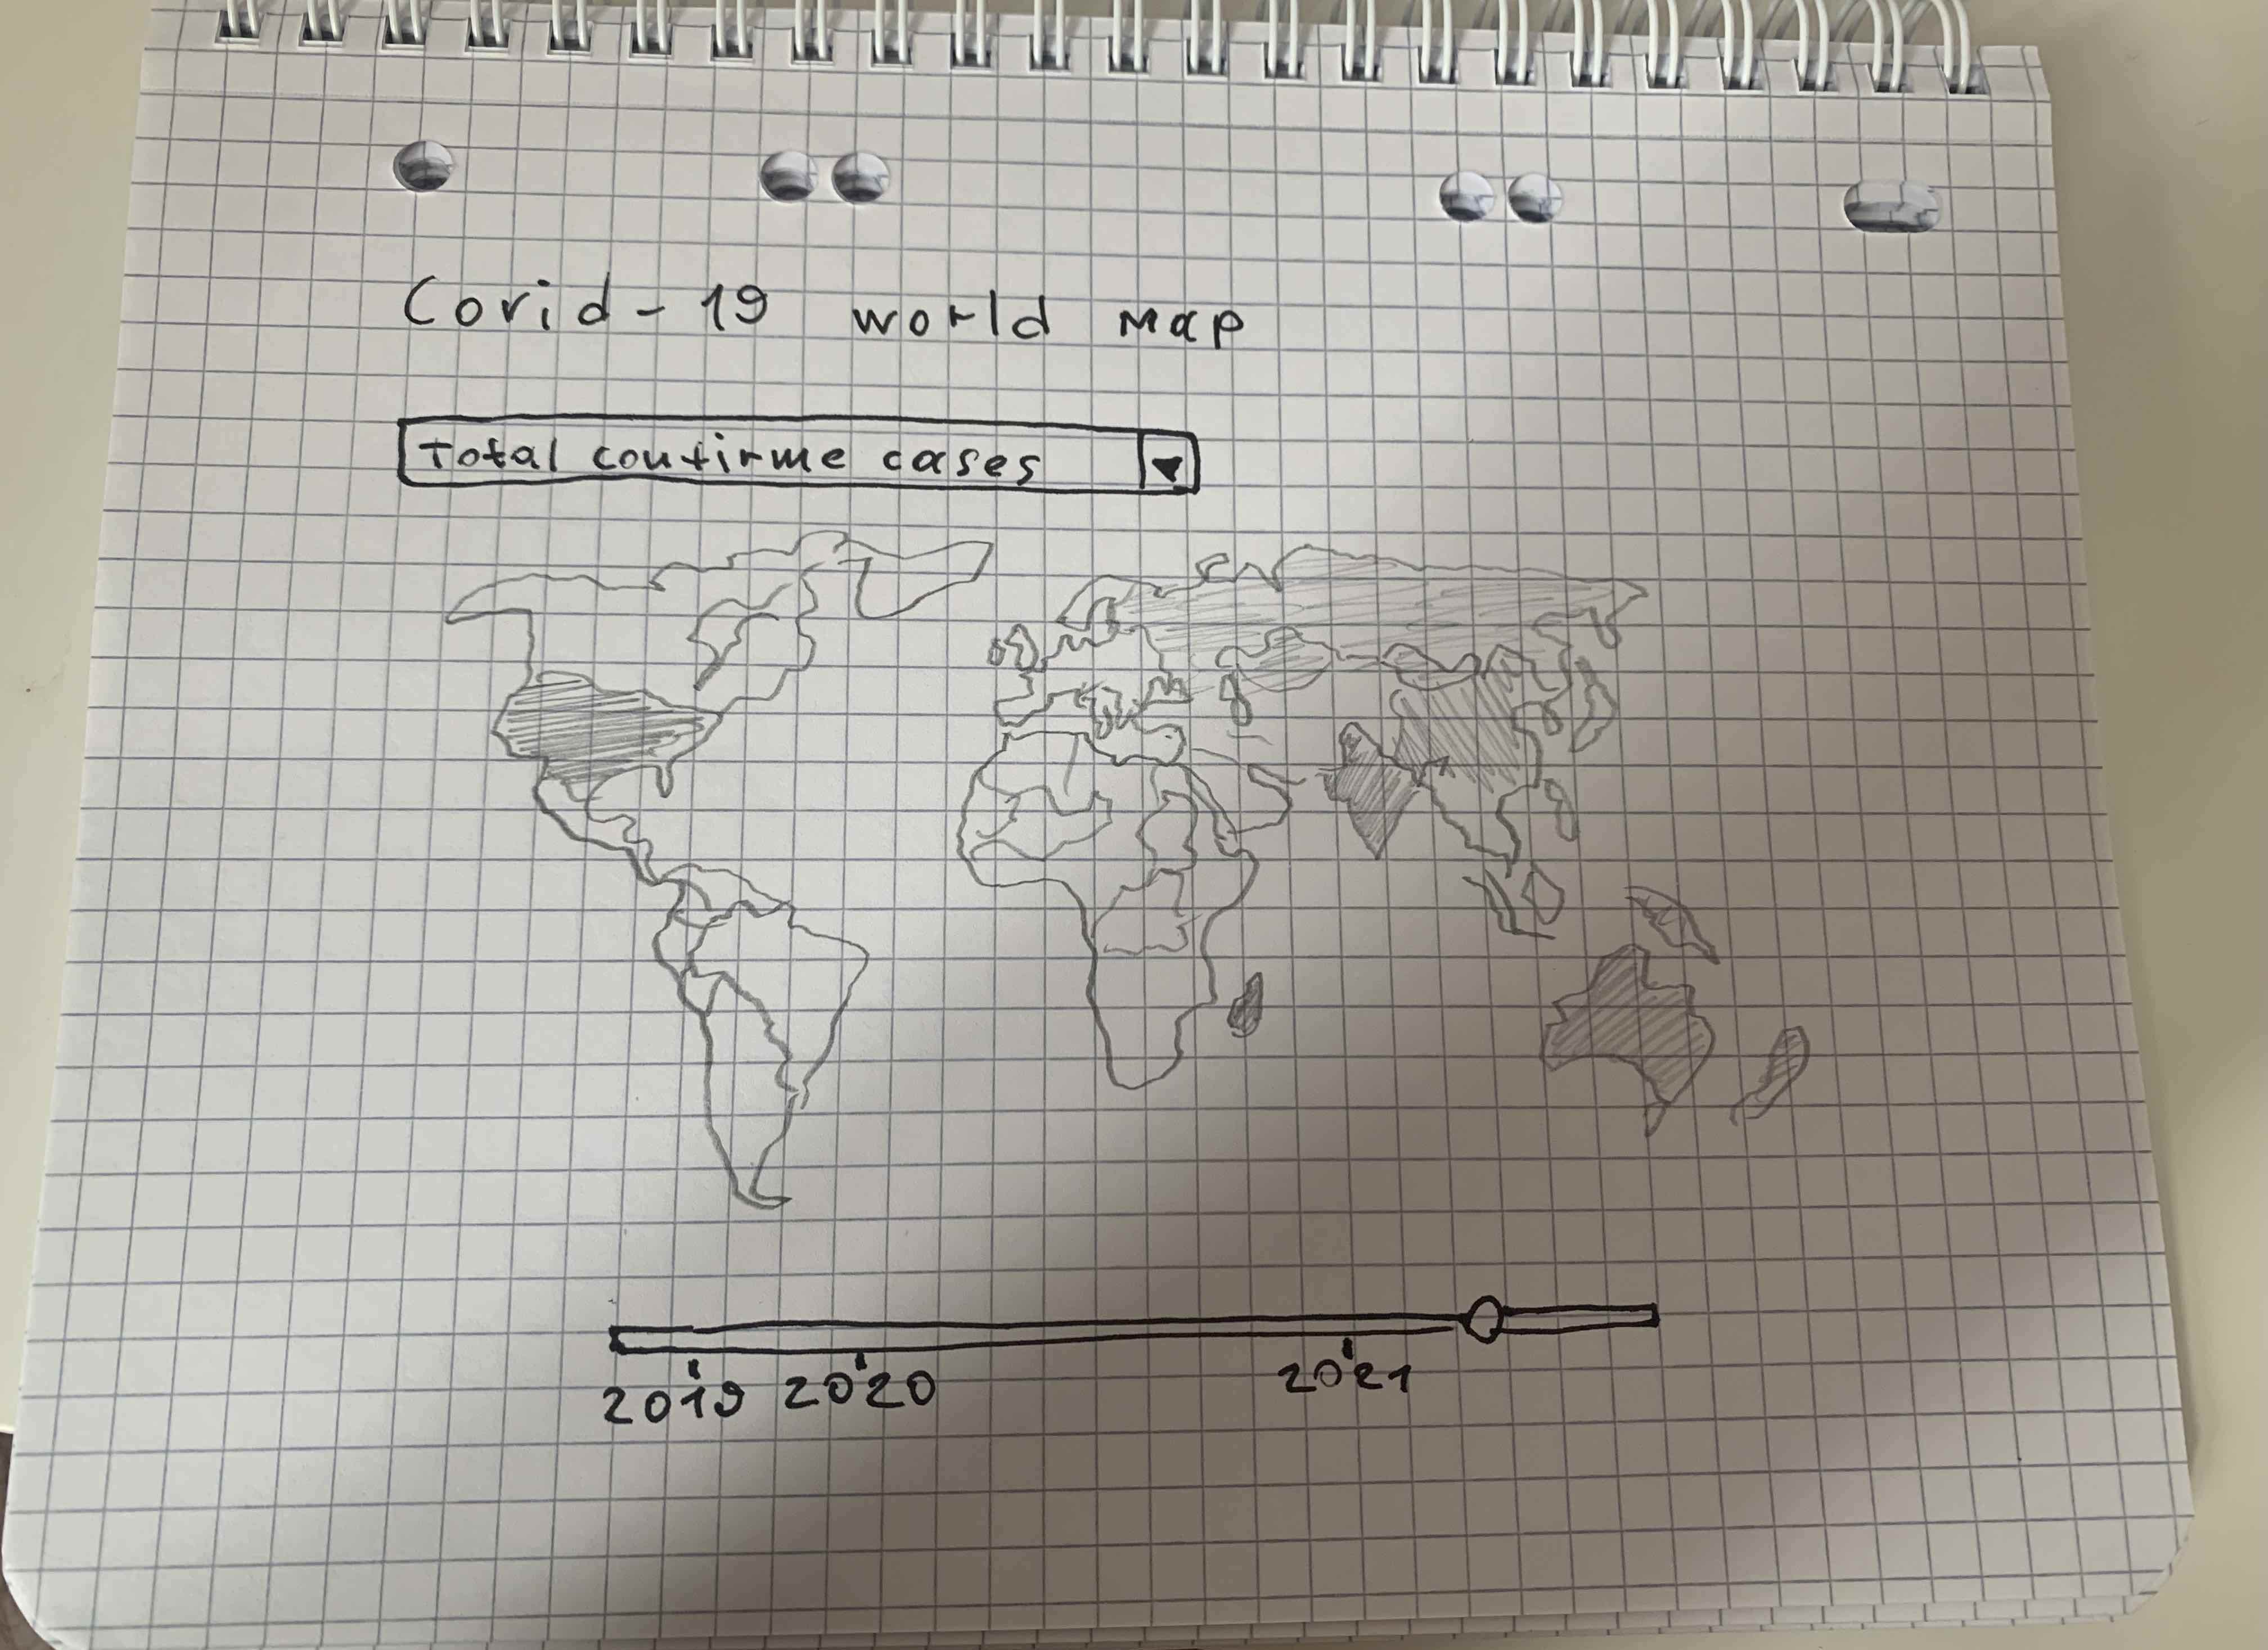 Covid-19 world map
Total confirme cases
2019 2020 2021